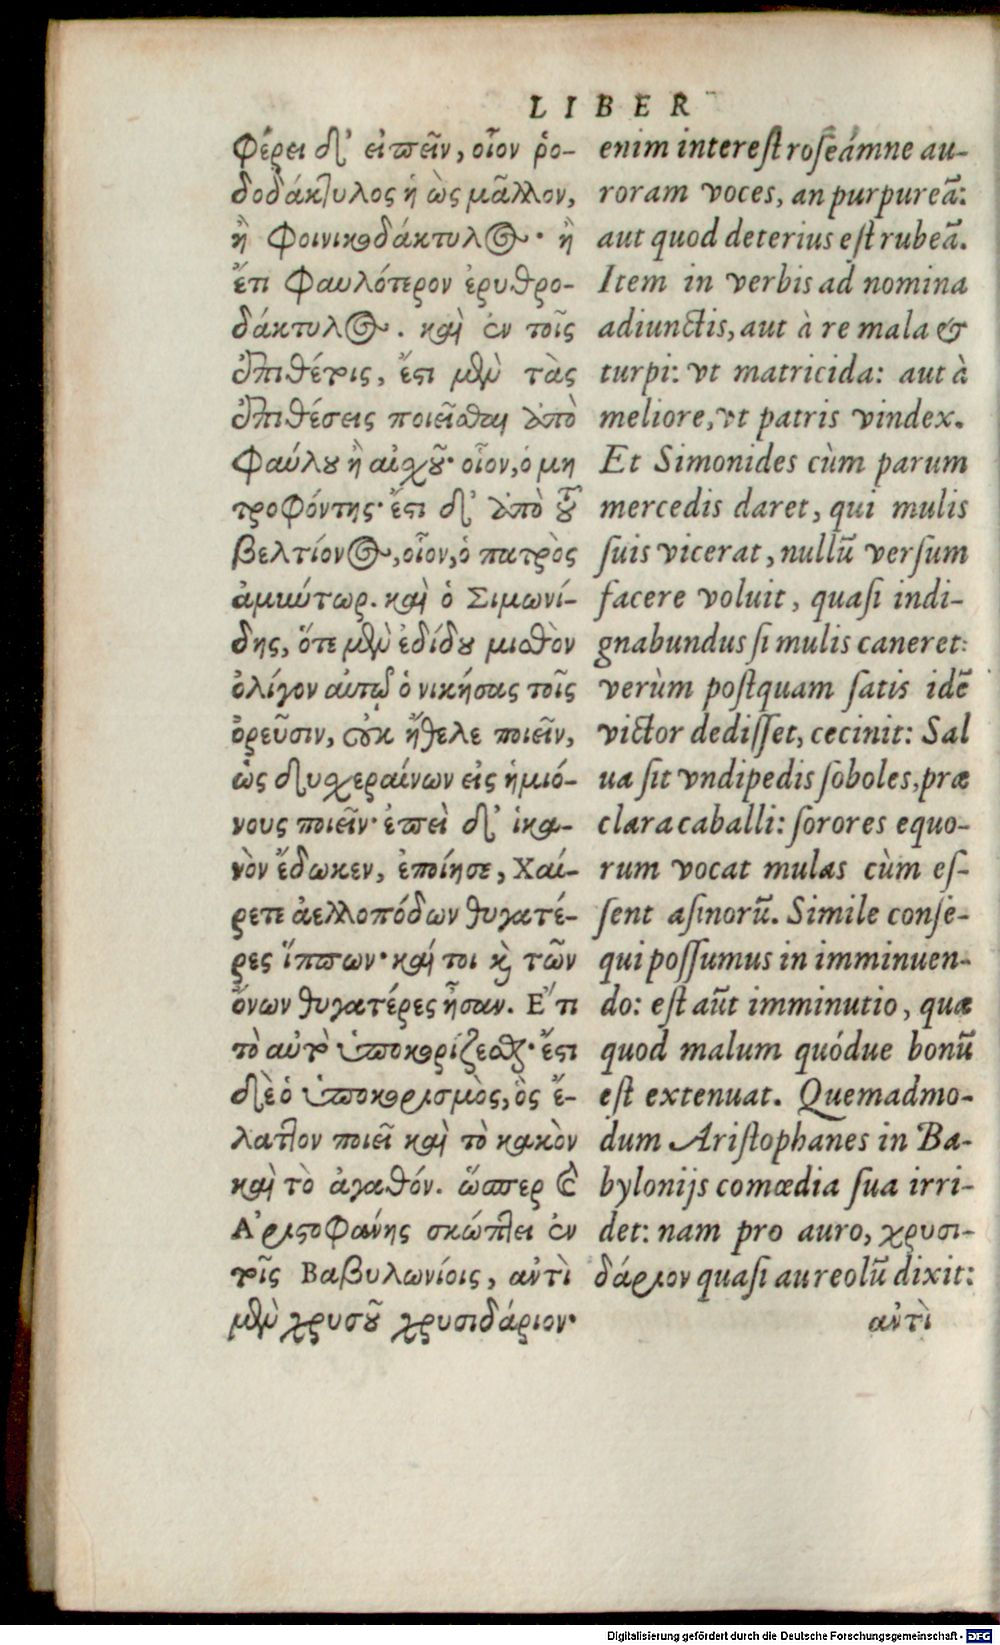 LIBER
φέρει δ' εἰπεῖν, οἷον ῥο-
δοδάκτυλος ἠὼς μᾶλλον,
ἢ φοινικοδάκτυλος· ἢ
ἔτι φαυλότερον ἐρυθρο-
δάκτυλος. καὶ ἐν τοῖς
ἐπιθέτοις, ἔστι μὲν τὰς
ἐπιθέσεις ποιεῖσθαι ἀπὸ
φαύλου ἢ αἰσχροῦ· οἷον, ὁ μη
τροφόντης· ἔστι δ' ἀπὸ τοῦ
βελτίονος, οἷον, ὁ πατρὸς
ἀμύντωρ. καὶ ὁ Σιμωνί-
δης, ὅτε μὲν ἐδίδου μισθὸν
ὀλίγον αὐτῷ ὁ νικήσας τοῖς
ὀρεῦσιν, οὐκ ἤθελε ποιεῖν,
ὡς δυσχεραίνων εἰς ἡμιό-
νους ποιεῖν· ἐπεὶ δ' ἱκα-
νὸν ἔδωκεν, ἐποίησε, Χαί-
ρετε ἀελλοπόδων θυγατέ-
ρες ἵππων· καί τοι καὶ τῶν
ὄνων θυγατέρες ἦσαν. Ἔτι
τὸ αὐτὸ ὑποκορίζεσθαι· ἔστι
δὲ ὁ ὑποκορισμὸς, ὃς ἔ-
λαττον ποιεῖ καὶ τὸ κακὸν
καὶ τὸ ἀγαθόν. ὥσπερ καὶ
Ἀριστοφάνης σκώπτει ἐν
τοῖς Βαβυλωνίοις, αὐτὶ
μὲν χρυσοῦ χρυσιδάριον·
enim interest roseámne au-
roram voces, an purpureã:
aut quod deterius est rubeã.
Item in verbis ad nomina
adiunctis, aut à re mala &
turpi: vt matricida: aut à
meliore, vt patris vindex.
Et Simonides cùm parum
mercedis daret, qui mulis
suis vicerat, nullũ versum
facere voluit, quasi indi-
gnabundus si mulis caneret:
verùm postquam satis idẽ
victor dedisset, cecinit: Sal
ua sit vndipedis soboles, præ
clara caballi: sorores equo-
rum vocat mulas cùm es-
sent asinorũ. Simile conse-
qui possumus in imminuen-
do: est aũt imminutio, quæ
quod malum quódue bonũ
est extenuat. Quemadmo-
dum Aristophanes in Ba-
bylonijs comœdia sua irri-
det: nam pro auro, χρυσι-
δάριον quasi aureolũ dixit:
αὐτὶ
Digitalisierung gefördert durch die Deutsche Forschungsgemeinschaft - DFG